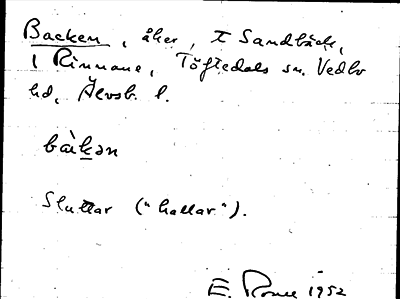 Backen, åker, t Sandbäck,
1 Rinnane, Töftedals sn. Vedbo
hd, Älvsb. l.
bàkən
Sluttar ("hallar").
E. 1952